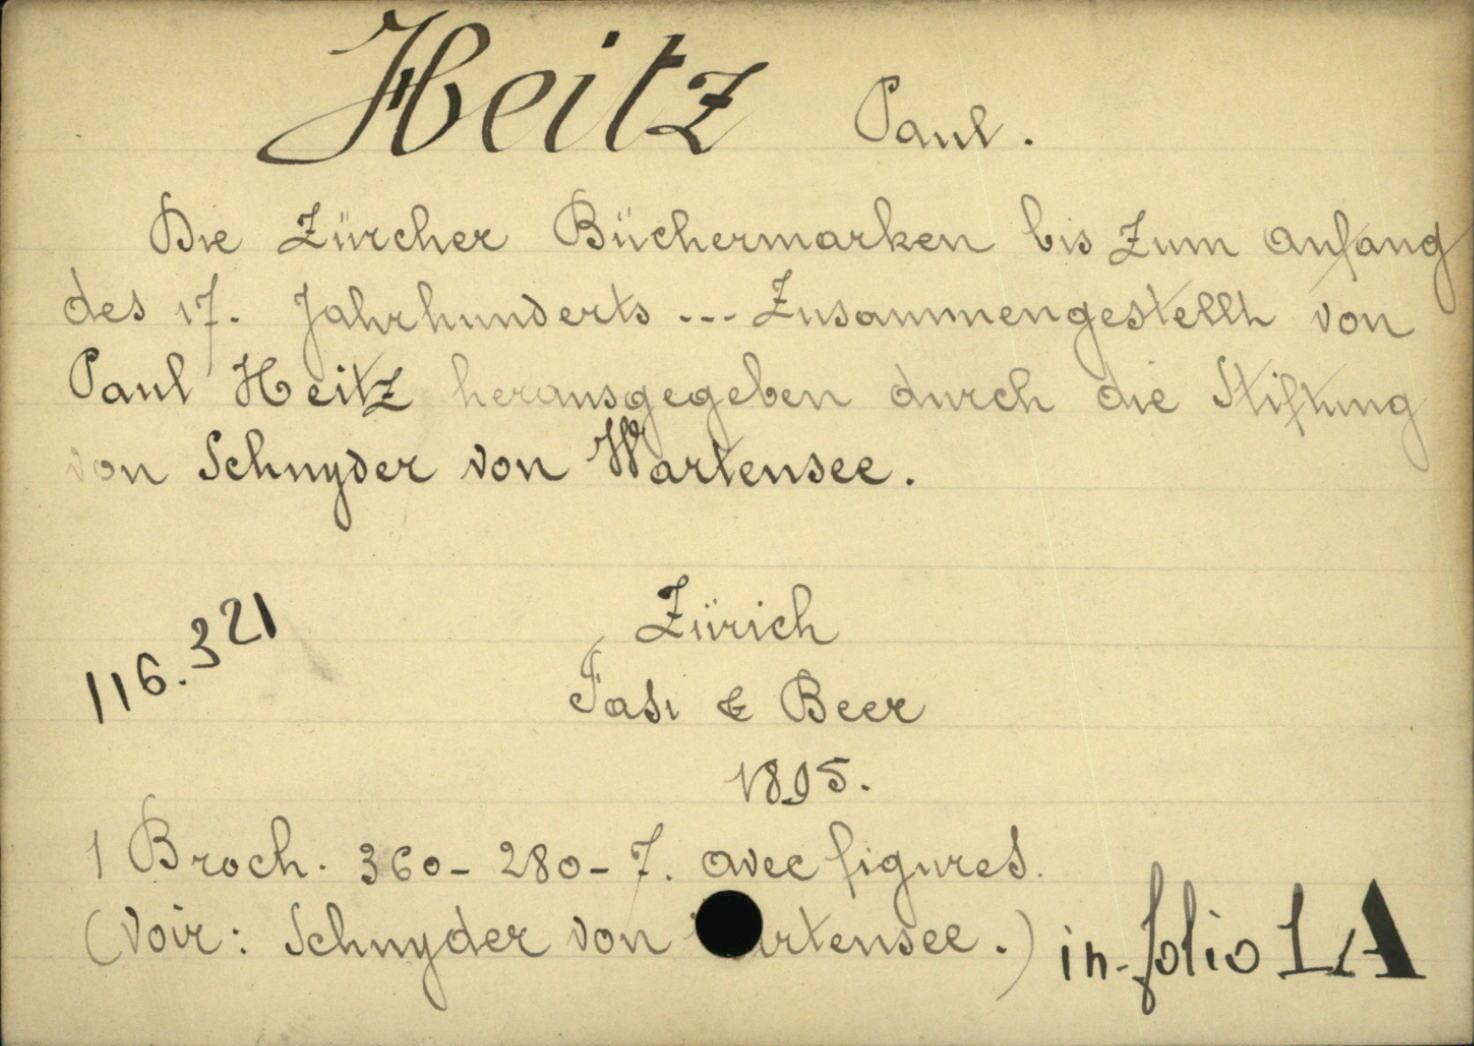 Heitz Paul.
Die Zürcher Büchermarken bis zum anfang
des 17. Jahrhunderts ... Zusammengestellt von
Paul Heitz herausgegeben durch die Stiftung
von Schnyder von Wartensee.
116.321
Zürich
Fasi & Beer
1895.
1 Broch. 360-280-7. avec figures.
(Voir: Schnyder von Wartensee.) in-folio LA